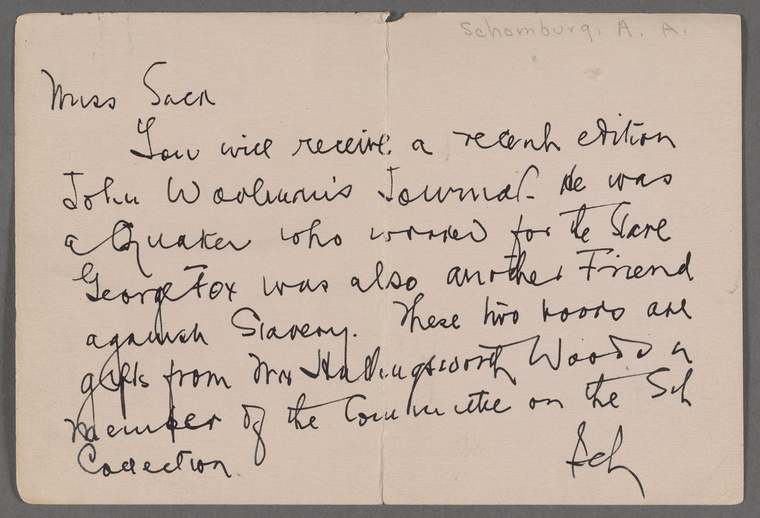 Schomburg, A. A.
Miss Sacn
You will receive a recent edition
John Woolman's Journal. He was
a Quaker who worked for the Slave
George Fox was also another Friend
against Slavery. These two books are
gifts from Mr Hollingsworth Wood a
member of the Committee on the Sch
Collection
Sch